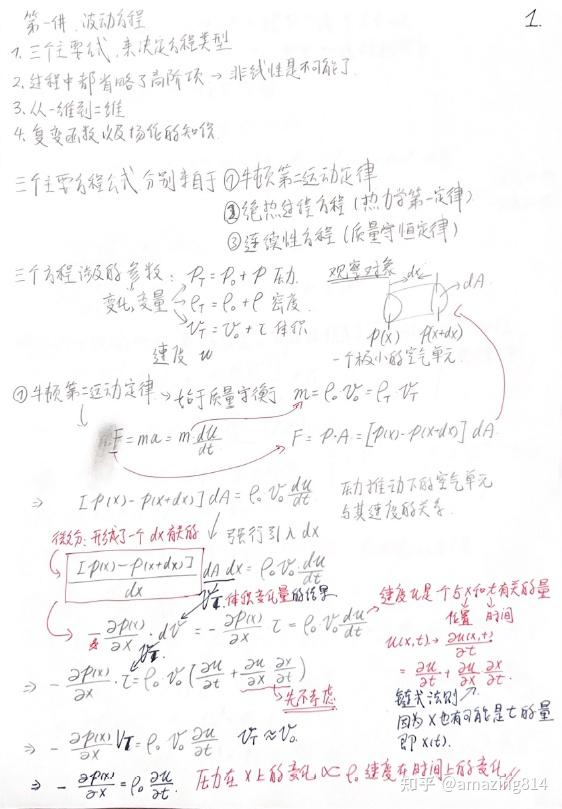 1.
第一讲、波动方程
1. 三个主要式，来决定方程类型
2. 过程中都省略了高阶项 → 非线性是不可能了
3. 从一维到三维
4. 复变函数以及场论的知识
三个主要方程公式 分别来自于 ①牛顿第二运动定律
②绝热过程方程(热力学第一定律)
③连续性方程(质量守恒定律)
三个方程涉及的参数: P_T = P_0 + P 压力. 观察对象 dx
变化变量 ρ_T = ρ_0 + ρ 密度. dA
V_T = V_0 + τ 体积 P(x) P(x+dx)
速度 u 一个极小的空气单元
①牛顿第二运动定律 → 始于质量守衡 m = ρ_0 V_0 = ρ_T V_T
F = ma = m du/dt F = P·A = [P(x) - P(x+dx)] dA
⇒ [P(x) - P(x+dx)] dA = ρ_0 V_0 du/dt 压力推动下的空气单元
与其速度的关系.
微分: 形成了一个dx有关的 ↓ 强行引入 dx
[P(x) - P(x+dx)]/dx dA dx = ρ_0 V_0 du/dt
V_T. 体积变化量的结果
-∂P(x)/∂x · dV = -∂P(x)/∂x τ = ρ_0 V_0 du/dt 速度u是个与x和t有关的量
V_T. 位置 时间
u(x,t) → ∂u(x,t)/∂t
⇒ -∂P(x)/∂x · τ = ρ_0 V_0 (∂u/∂t + ∂u/∂x ∂x/∂t) = ∂u/∂t + ∂u/∂x ∂x/∂t.
先不考虑 链式法则
因为x也有可能是t的量
即 x(t).
⇒ -∂P(x)/∂x V_T = ρ_0 V_0 ∂u/∂t V_T ≈ V_0
⇒ -∂P(x)/∂x = ρ_0 ∂u/∂t. 压力在x上的变化 ∝ ρ_0 速度在时间上的变化
知乎 @amazing814